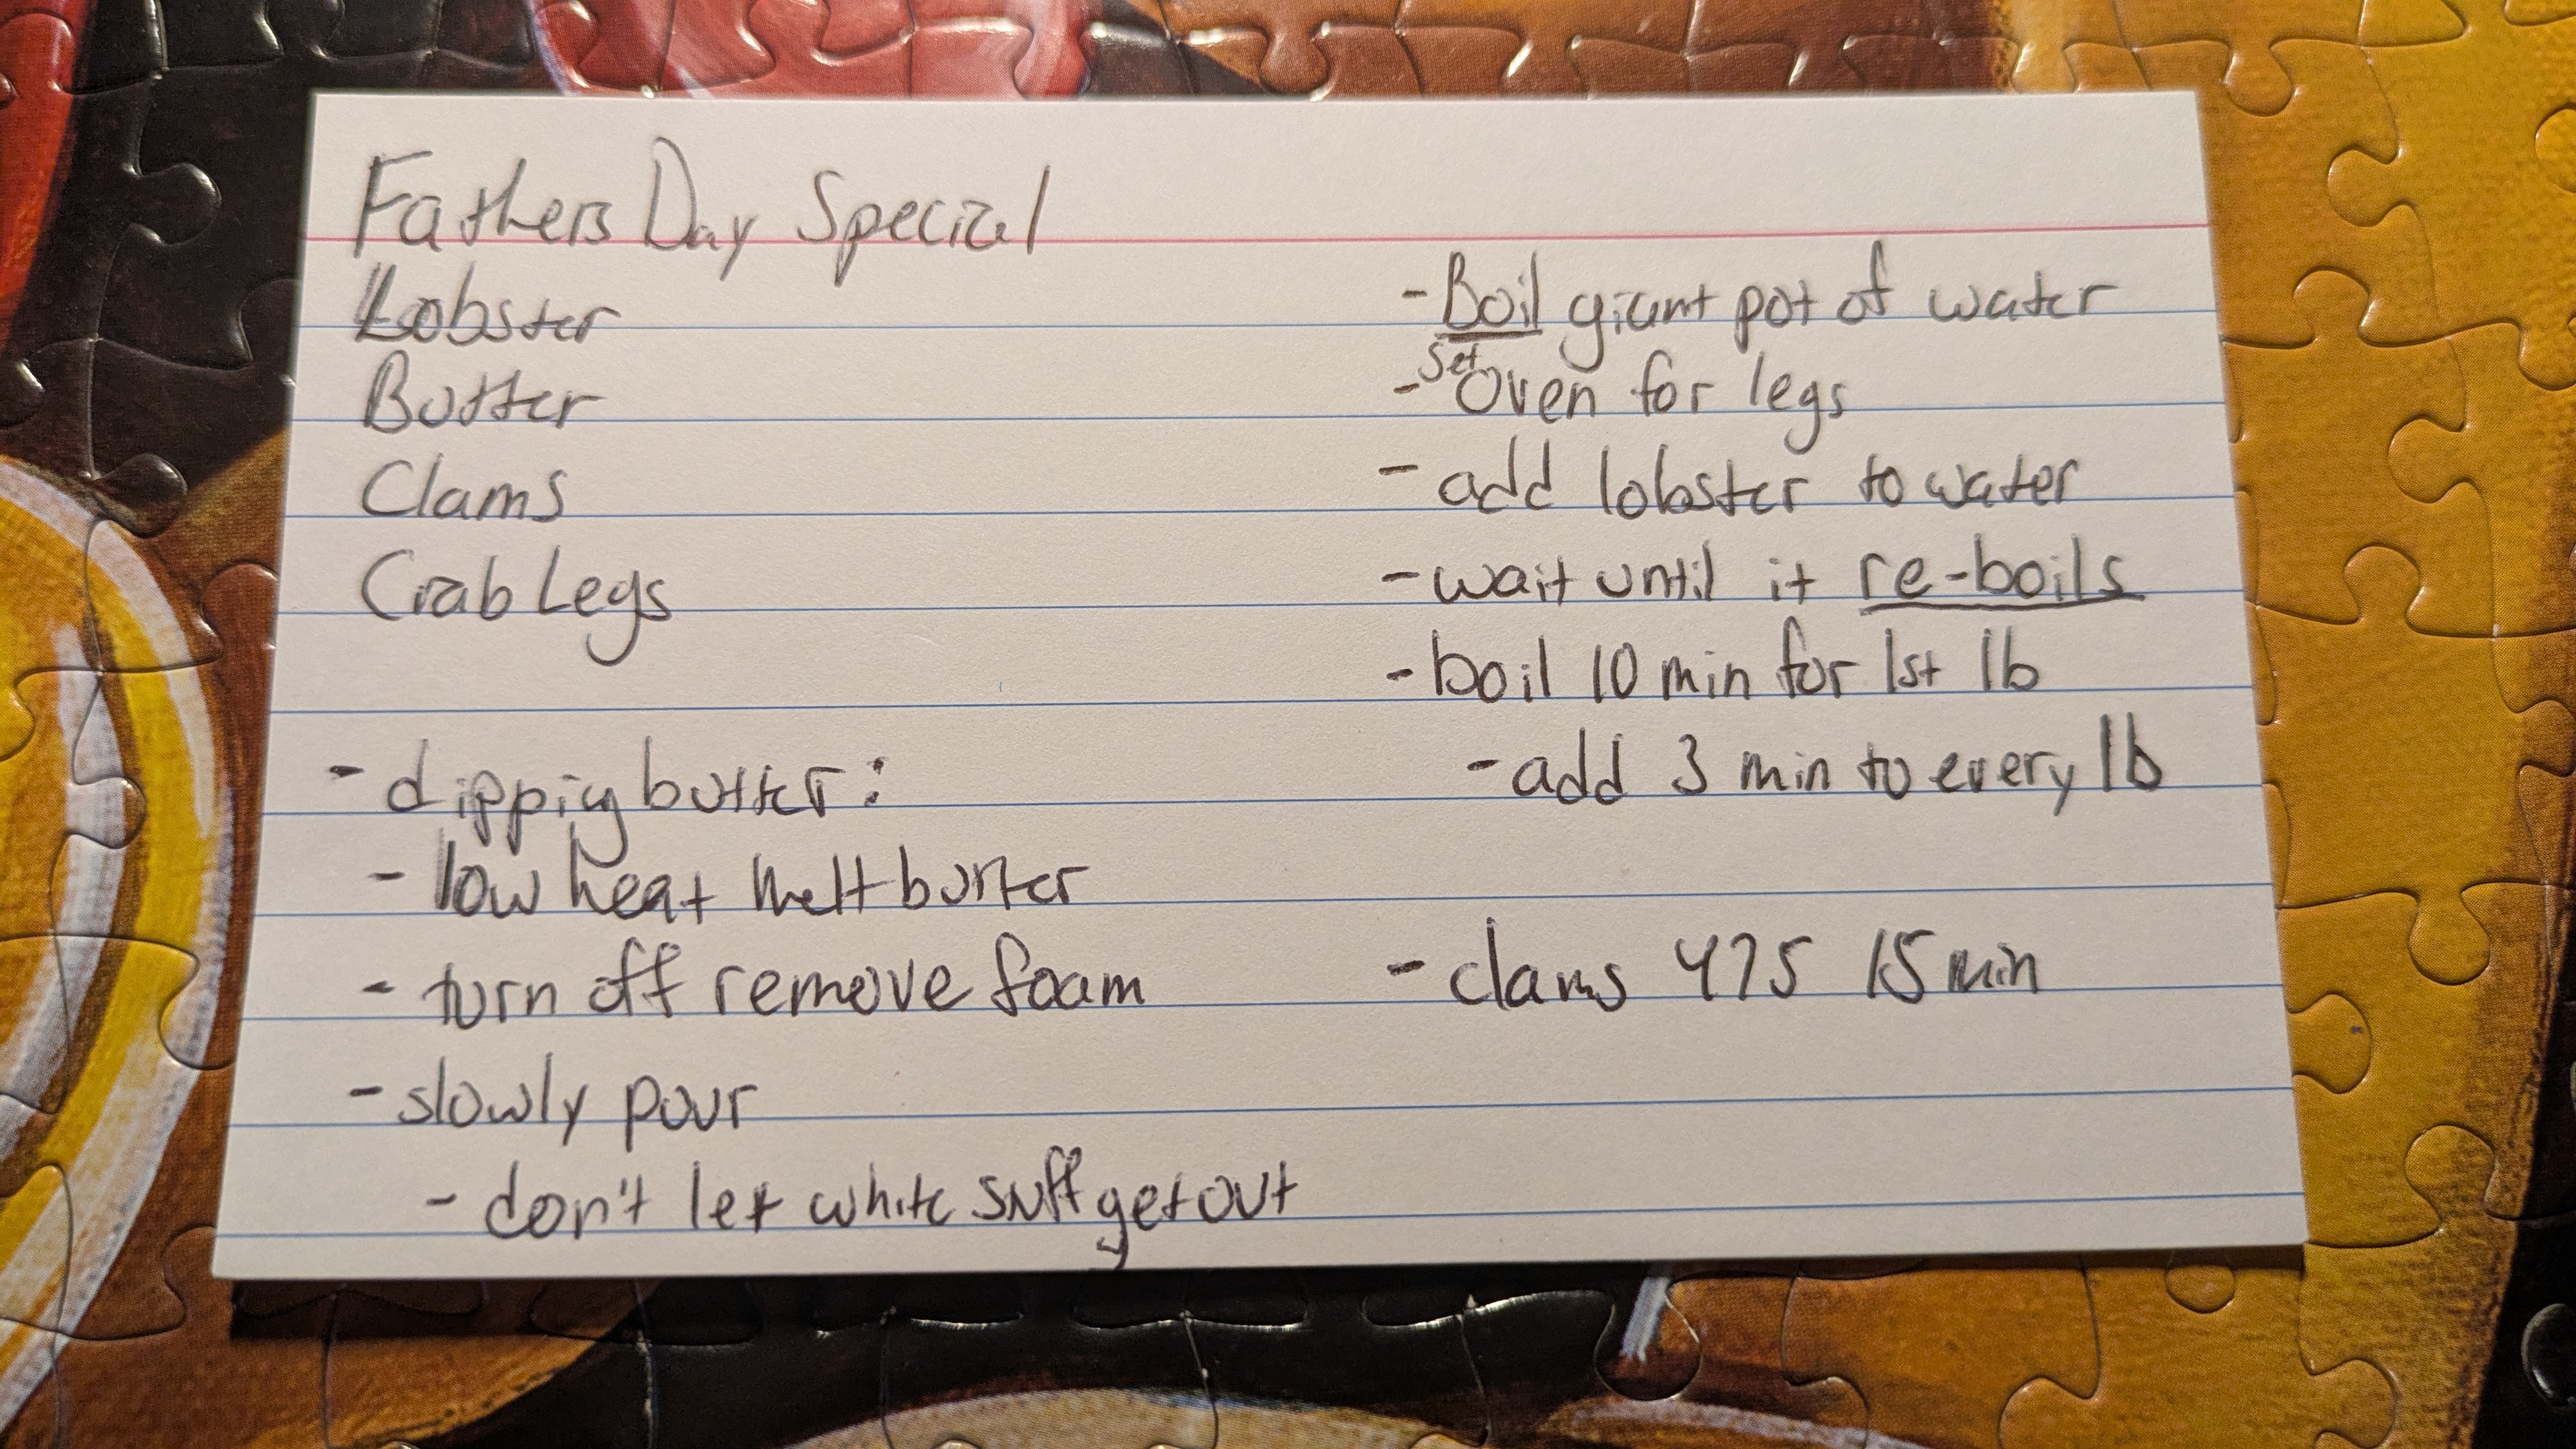 Fathers Day Special
Lobster
Butter
Clams
Crab Legs
- dippig butter:
- low heat melt butter
- turn off remove foam
- slowly pour
- don't let white suff get out
- Boil giant pot of water
- Set Oven for legs
- add lobster to water
- wait until it re-boils
- boil 10 min for 1st lb
- add 3 min to every lb
- clams 475 15 min